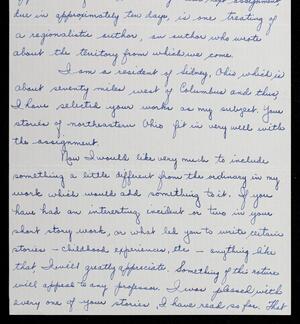 assignment,
due in approximately ten days, is one treating of
a regionalistic author, an author who wrote
about the territory from which we come.
I am a resident of Sidney, Ohio which is
about seventy miles west of Columbus and thus,
I have selected your works as my subject. Your
stories of northeastern Ohio fit in very well with
the assignment.
Now I would like very much to include
something a little different from the ordinary in my
work which would add something to it. If you
have had an interesting incident or two in your
short story work, or what led you to write certain
stories - childhood experiences, etc - anything like
that, I will greatly appreciate. Something of this nature
will appeal to any professor. I was pleased with
every one of your stories, I have read so far. That